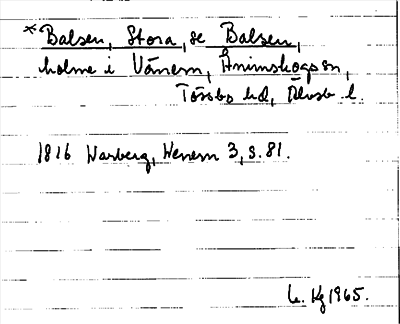 *Balsen, Stora, se Balsen,
holme i Vänern, Ånimskogs sn,
Tössbo hd, Älvsb l.
1816 Warberg, Wenern 3, s. 81.
Kg 1965.